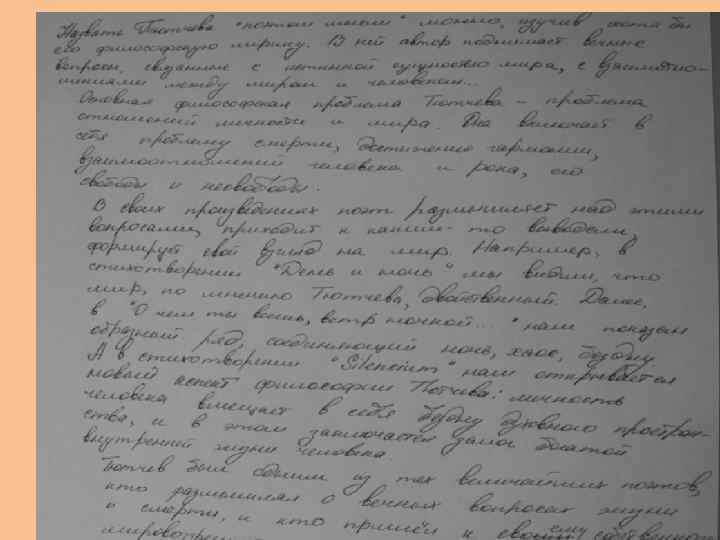 Назвать Тютчева "поэтом мысли" можно, изучив хотя бы
его философскую лирику. В ней автор поднимает вечные
вопросы, связанные с истинной сущностью мира, с взаимотно-
шениями между миром и человеком...
Основная философская проблема Тютчева - проблема
отношений личности и мира. Она включает в
себя проблему смерти, достижению гармонии,
взаимоотношений человека и рока, его
свободы и несвободы.
В своих произведениях поэт размышляет над этими
вопросами, приходит к каким-то выводам,
формирует свой взгляд на мир. Например, в
стихотворении "День и ночь" мы видим, что
мир, по мнению Тютчева, двойственный. Далее,
в "О чем ты воешь, ветр ночной..." нам показан
образный ряд, соединяющий ночь, хаос, бездну.
А в стихотворении "Silencium" нам открывается
новый аспект философии Тютчева: личность
человека вмещает в себя бездну духовного простран-
ства, и в этом заключается залог богатой
внутренней жизни человека.
Тютчев был одним из тех величайших поэтов,
кто размышлял о вечных вопросах жизни
и смерти, и кто пришёл к своему собственному